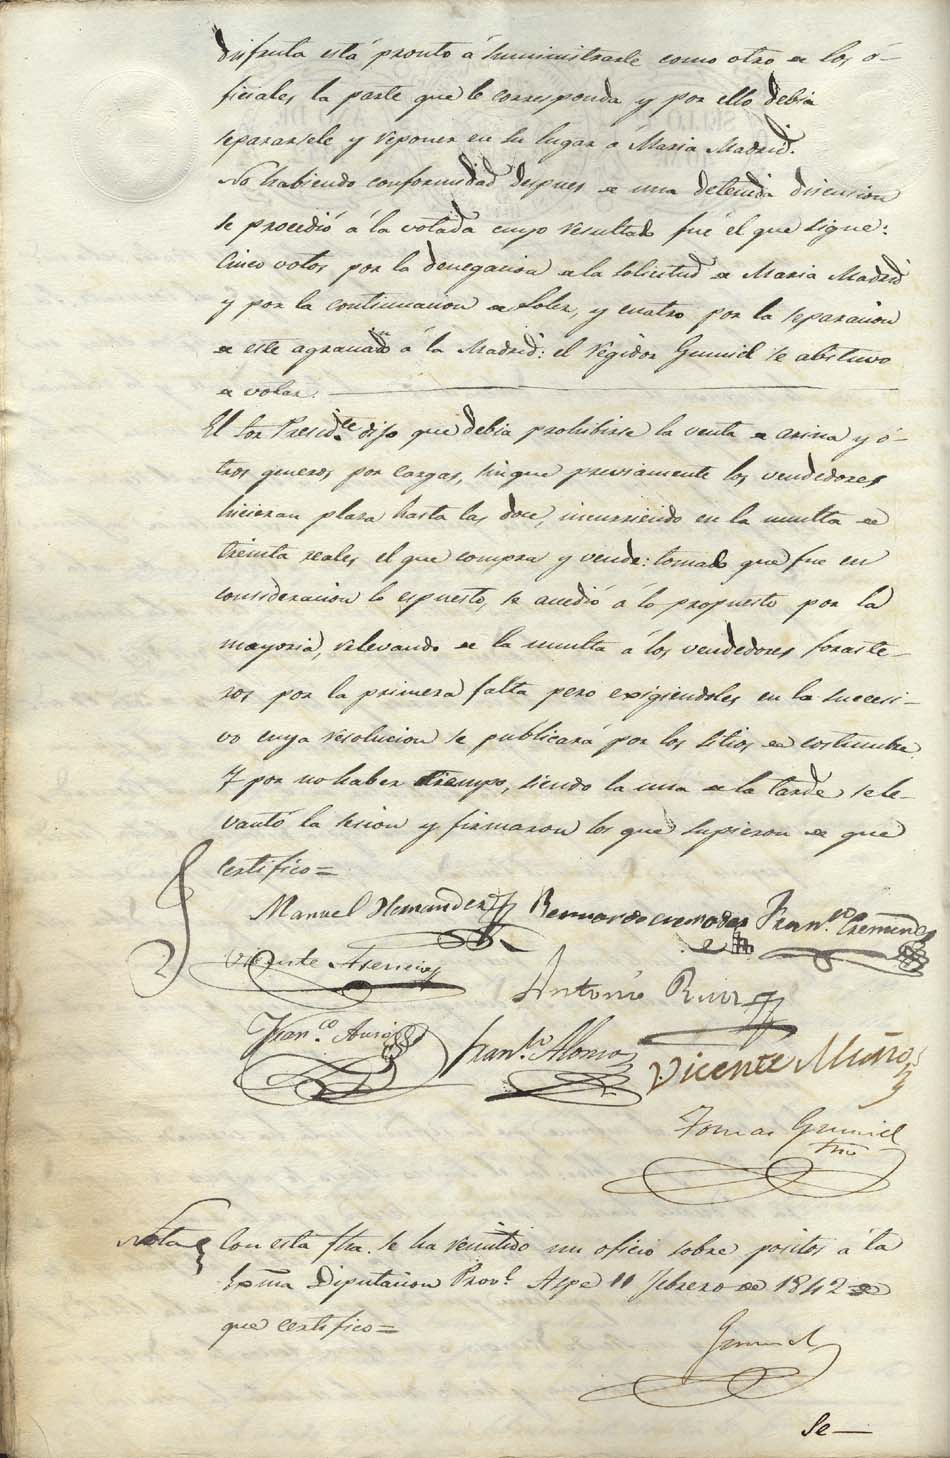 disfruta está pronto á suministrarle como otro de los ó-
ficiales la parte que le corresponda y por ello debia
separarsele y reponer en su lugar á Maria Madrid.
No habiendo conformidad despues de una detenida discusion
se procedió á la votada cuyo resultado fué el que sigue:
Cinco votos por la denegacion de la solicitud de Maria Madrid
y por la continuacion de Soler, y cuatro por la separacion
de este agraciando á la Madrid: el regidor Gumiel se abstuvo
de votar.
El Sor Presidte. dijo que debia prohibirse la venta de arina y ó-
tros generos por cargas, sin que previamente los vendedores
hicieran plaza hasta las doce, incurriendo en la multa de
treinta reales el que compra y vende: tomado que fue en
consideracion lo espuesto, se accedió á lo propuesto por la
mayoria, relevando de la multa á los vendedores foraste-
ros por la primera falta pero exigiendoles en lo sucesi-
vo cuya resolucion se publicará por los sitios de costumbre.
Y por no haber tiempo, siendo la una de la tarde se le-
vantó la sesion y firmaron los que supieron de que
certifico=
Manuel Hernandez Bernardo cremades Fran.co Cremades
Vicente Asencio
Antonio Ruiz
Fran.co
Fran.co Alonso
Vicente Muños
Tomas Gumiel
Srio
Nota Con esta fha. se ha remitido un oficio sobre positos á la
Exma Diputacion Prov.l Aspe 11 febrero de 1842 de
que certifico=
Gumiel
Se-